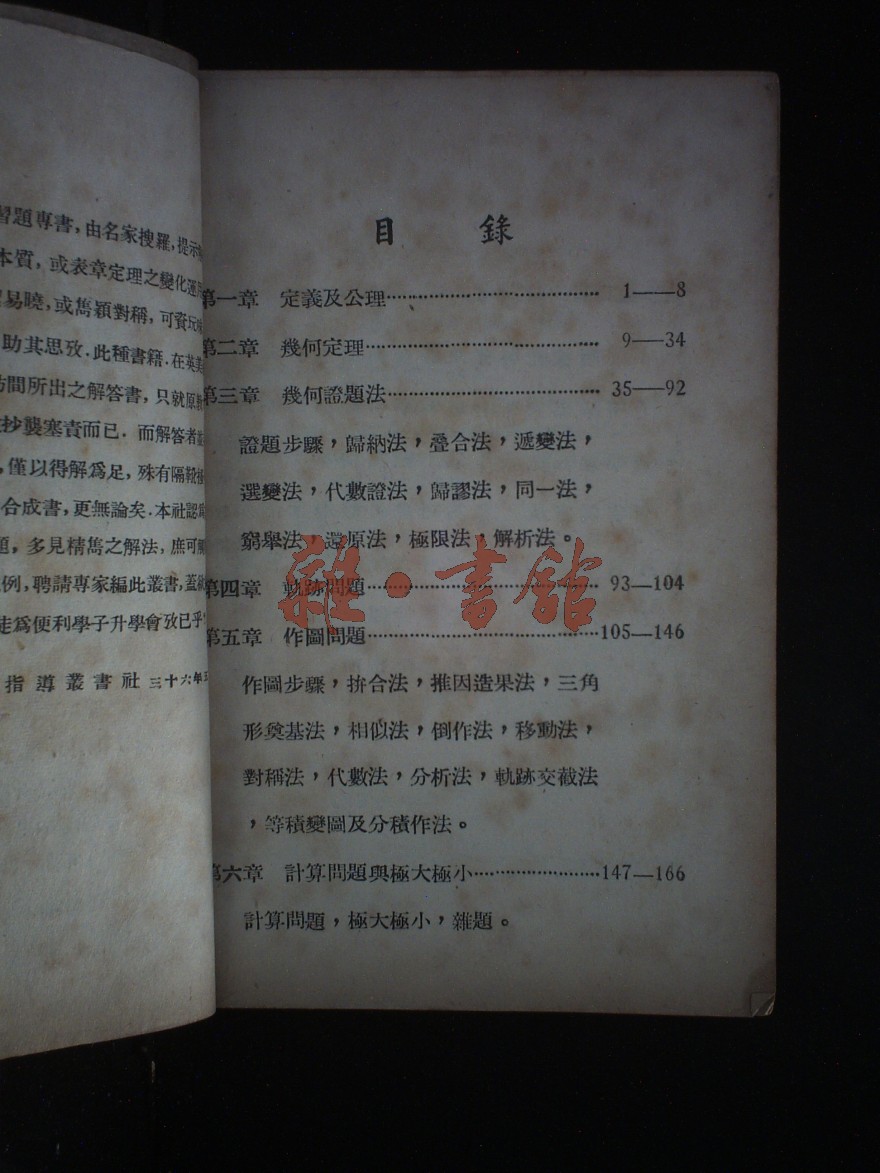 習題專書，由名家搜羅，提示
本質，或表章定理之變化運
易曉，或雋穎對稱，可資玩
助其思攷．此種書籍．在英美
坊間所出之解答書，只就原
抄襲塞責而已．而解答者
，僅以得解爲足，殊有隔鞍
合成書，更無論矣．本社認
題，多見精雋之解法，庶可
例，聘請專家編此叢書，蓋
徒爲便利學子升學會攷已乎
指導叢書社 三十六年
目錄
第一章 定義及公理……………………………… 1——8
第二章 幾何定理………………………………… 9—34
第三章 幾何證題法……………………………… 35—92
證題步驟，歸納法，疊合法，遞變法，
選變法，代數證法，歸謬法，同一法，
窮舉法，還原法，極限法，解析法。
第四章 軌跡問題………………………………… 93—104
第五章 作圖問題…………………………………105—146
作圖步驟，拚合法，推因造果法，三角
形奠基法，相似法，倒作法，移動法，
對稱法，代數法，分析法，軌跡交截法
，等積變圖及分積作法。
第六章 計算問題與極大極小…………………147—166
計算問題，極大極小，雜題。
雜·書館